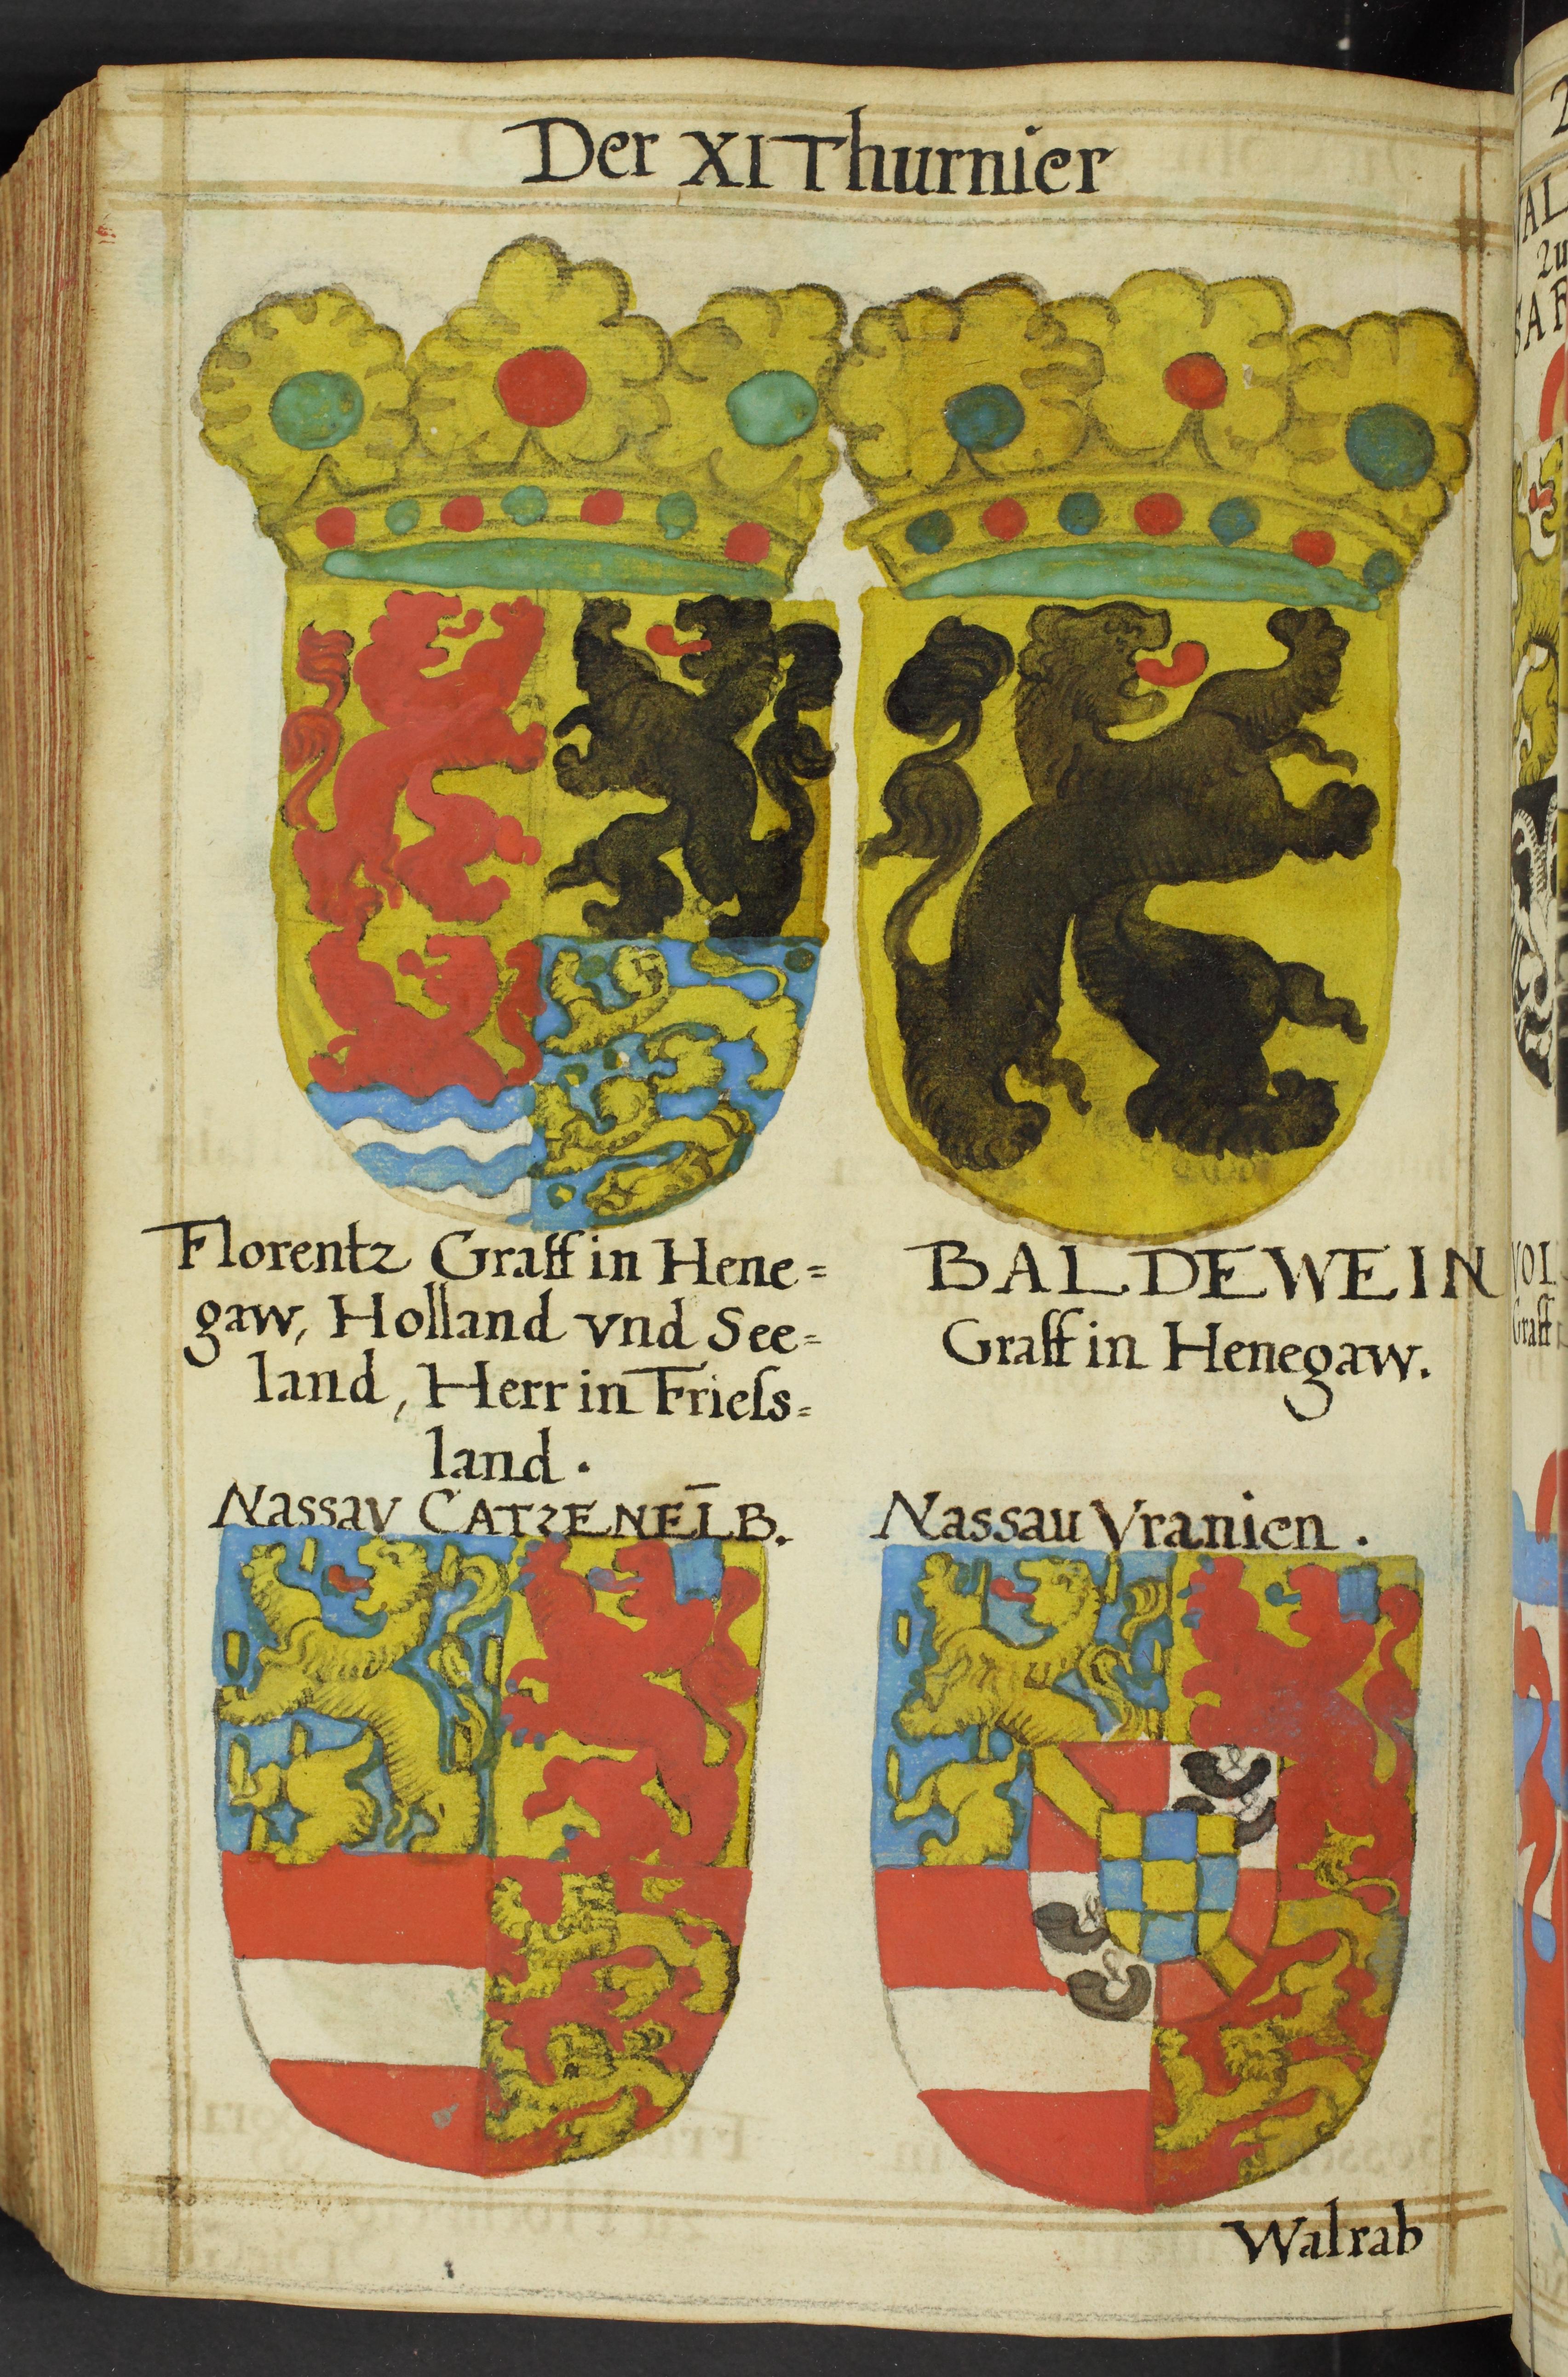 Der XI Thurnier
Florentz Graff in Hene=
gaw, Holland vnd See=
land, Herr in Friefs=
land.
BALDEWEIN
Graff in Henegaw.
Nassav CATZENEL̄B.
Nassau Vranien.
Walrab